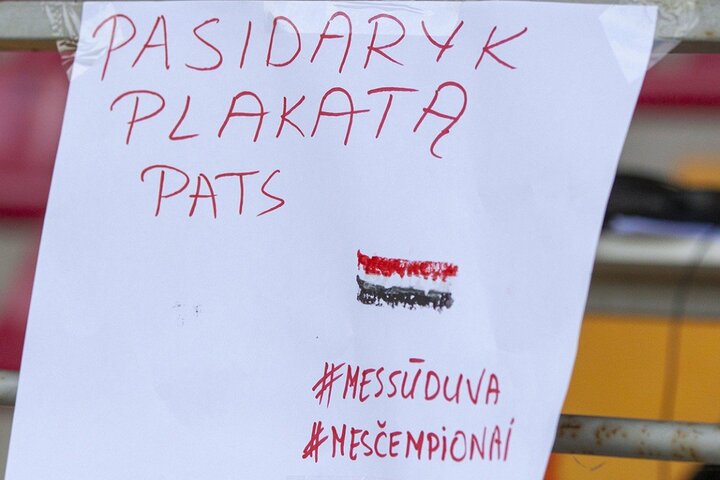 PASIDARYK
PLAKATĄ
PATS
#MESSŪDUVA
#MESČEMPIONAI